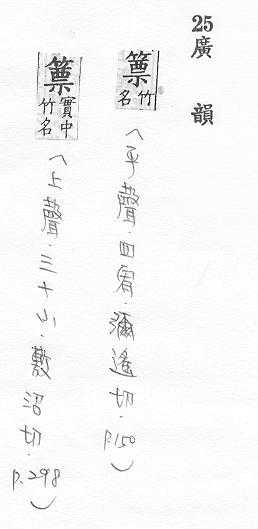 25廣韻
篻竹名（平聲．四宵．彌遙切．P.150）
篻實中竹名（上聲．三十小．敷沼切．P.298）